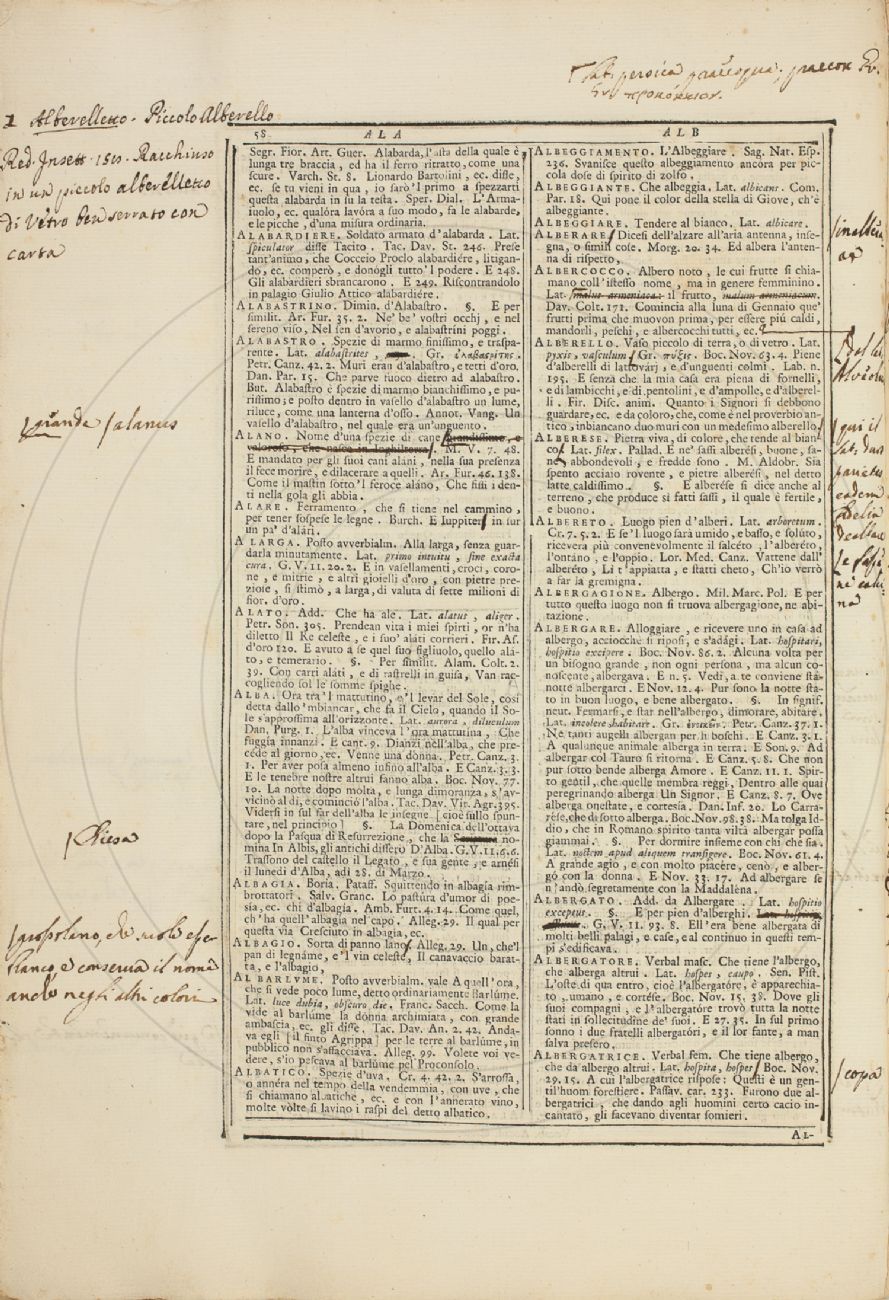 1 Alberelletto. Piccolo Alberello
Red. Insett. 151. Racchiuso
in un piccolo alberelletto
di vetro ben serrato con
carta
58 ALA ALB
Segr. Fior. Art. Guer. Alabarda, l'asta della quale è
lunga tre braccia, ed ha il ferro ritratto, come una
scure. Varch. St. 8. Lionardo Bartolini, ec. disse,
ec. se tu vieni in qua, io sarò 'l primo a spezzarti
questa alabarda in su la testa. Sper. Dial. L'Arma-
iuolo, ec. qualóra lavóra a suo modo, fa le alabarde,
e le picche, d'una misura ordinaria.
ALABARDIERE. Soldato armato d'alabarda. Lat.
spiculator disse Tacito. Tac. Dav. St. 246. Prese
tant'animo, che Cocceio Proclo alabardiére, litigan-
do, ec. comperò, e donógli tutto 'l podere. E 248.
Gli alabardieri sbrancarono. E 249. Riscontrandolo
in palagio Giulio Attico alabardiére.
ALABASTRINO. Dimin. d'Alabastro. §. E per
similit. Ar. Fur. 35. 2. Ne' be' vostri occhj, e nel
sereno viso, Nel sen d'avorio, e alabastrini poggi.
ALABASTRO. Spezie di marmo finissimo, e traspa-
rente. Lat. alabastrites, Gr. ἀλαβαρίτης.
Petr. Canz. 42. 2. Muri eran d'alabastro, e tetti d'oro.
Dan. Par. 15. Che parve fuoco dietro ad alabastro.
But. Alabastro è spezie di marmo bianchissimo, e pu-
rissimo; e posto dentro in vasello d'alabastro un lume,
riluce, come una lanterna d'osso. Annot. Vang. Un
vasello d'alabastro, nel quale era un'unguento.
grande / alanus
ALANO. Nome d'una spezie di cane grandissimo, e
valoroso, che nasce in Inghilterra. M. V. 7. 48.
E mandato per gli suoi cani alani, nella sua presenza
il fece morire, e dilacerare a quelli. Ar. Fur. 46. 138.
Come il mastin sotto 'l feroce aláno, Che fissi i den-
ti nella gola gli abbia.
ALARE. Ferramento, che si tiene nel cammino,
per tener sospese le legne. Burch. E Iuppiter in sur
un pa' d'alári.
A LARGA. Posto avverbialm. Alla larga, senza guar-
darla minutamente. Lat. primo intuitu, sine exacta
cura. G. V. 11. 20. 2. E in vasellamenti, croci, coro-
ne, e mitrie, e altri gioielli d'oro, con pietre pre-
ziose, si stimò, a larga, di valuta di sette milioni di
fior. d'oro.
ALATO. Add. Che ha ale. Lat. alatus, aliger.
Petr. Son. 305. Prendean vita i miei spirti, or n'ha
diletto Il Re celeste, e i suo' aláti corrieri. Fir. As.
d'oro 120. E avuto a se quel suo figliuolo, quello alá-
to, e temerario. §. Per similit. Alam. Colt. 2.
39. Con carri aláti, e di rastrelli in guisa, Van rac-
cogliendo sol le somme spighe.
ALBA. Ora tra 'l mattutino, e 'l levar del Sole, così
detta dallo 'mbiancar, che fa il Cielo, quando il So-
le s'approssima all'orizzonte. Lat. aurora, diluculum
Dan. Purg. 1. L'alba vinceva l'ora mattutina, Che
fuggia innanzi. E cant. 9. Dianzi nell'alba, che pre-
cede al giorno, ec. Venne una donna. Petr. Canz. 3.
1. Per aver posa almeno infino all'alba. E Canz. 3. 3.
E le tenebre nostre altrui fanno alba. Boc. Nov. 77.
10. La notte dopo molta, e lunga dimoranza, s'av-
vicinò al dì, e cominciò l'alba. Tac. Dav. Vit. Agr. 395.
Vidersi in sul far dell'alba le insegne [cioè sullo spun-
tare, nel principio] §. La Domenica dell'ottava
Chiesa
dopo la Pasqua di Resurrezione, che la Scrittura no-
mina In Albis, gli antichi dissero D'Alba. G. V. 11. 6. 6.
Trassono del castello il Legato, e sua gente, e arnési
il lunedì d'Alba, adì 28. di Marzo.
ALBAGIA. Boria. Pataff. Squittendo in albagía rim-
brottatori. Salv. Granc. Lo pastura d'umor di poe-
sia, ec. chi d'albagía. Amb. Furt. 4. 14. Come quel,
ch'ha quell'albagía nel capo. Alleg. 29. Il qual per
questa via Cresciuto in albagía, ec.
grossolano, che suole esser
bianco, e conserva il nome
anche negli altri colori
ALBAGIO. Sorta di panno lano. Alleg. 29. Un, che 'l
pan di legnáme, e 'l vin celeste, Il canavaccio barat-
ta, e l'albagio,
AL BARLUME. Posto avverbialm. vale A quell'ora,
che si vede poco lume, detto ordinariamente Barlúme.
Lat. luce dubia, obscuro die. Franc. Sacch. Come la
vide al barlúme la dónna archimiata, con grande
ambascia, ec. gli disse. Tac. Dav. An. 2. 42. Anda-
va egli [il finto Agrippa] per le terre al barlúme, in
pubblico non s'affacciava. Alleg. 99. Volete voi ve-
dere, s'io pescava al barlúme pel Proconsolo.
ALBATICO. Spezie d'uva. Cr. 4. 42. 2. S'arrossa,
o annéra nel tempo della vendemmia, con uve, che
si chiamano albatiche, ec. e con l'annerato vino,
molte vólte si lavino i raspi del detto albatico.
ALBEGGIAMENTO. L'Albeggiare. Sag. Nat. Esp.
236. Svanisce questo albeggiamento ancóra per pic-
cola dose di spirito di zolfo.
ALBEGGIANTE. Che albeggia. Lat. albicans. Com.
Par. 18. Qui pone il color della stella di Giove, ch'è
albeggiante.
ALBEGGIARE. Tendere al bianco. Lat. albicare.
ALBERARE Dicesi dell'alzare all'aria antenna, inse-
gna, o simili cose. Morg. 20. 34. Ed albera l'anten-
na di rispetto,
ALBERCOCCO. Albero noto, le cui frutte si chia-
mano coll'istesso nome, ma in genere femminino.
Lat. malus armeniaca: il frutto, malum armeniacum.
Dav. Colt. 171. Comincia alla luna di Gennaio que'
frutti prima che muovon prima, per éssere più caldi,
mandorli, peschi, e albercocchi tutti, ec.
ALBERELLO. Vaso piccolo di terra, o di vetro. Lat.
pyxis, vasculum Gr. πύξις. Boc. Nov. 63. 4. Piene
d'alberelli di lattovárj, e d'unguenti colmi. Lab. n.
195. E senza che la mia casa era piena di fornelli,
e di lambicchi, e di pentolini, e d'ampolle, e d'alberel-
li. Fir. Disc. anim. Quanto i Signori si debbono
guardare, ec. e da coloro, che, come è nel proverbio an-
tico, inbiancano duo muri con un medesimo alberello
ALBERESE. Pietra viva, di colore, che tende al bian-
co Lat. silex. Pallad. E ne' sassi alberési, buone, sa-
ne, abbondevoli, e fredde sono. M. Aldobr. Sia
spento acciaio rovente, e pietre alberési, nel detto
latte caldissimo. §. E alberése si dice anche al
terreno, che produce sì fatti sassi, il quale è fertile,
e buono.
ALBERETO. Luogo pien d'alberi. Lat. arboretum.
Cr. 7. 5. 2. E se 'l luogo sarà umido, e basso, e soluto,
riceverà più convenevolmente il salcéto, l'alberéto,
l'ontáno, e l'oppio. Lor. Med. Canz. Vattene dall'
alberéto, Lì t'appiatta, e statti cheto, Ch'io verrò
a far la gremigna.
ALBERGAGIONE. Albergo. Mil. Marc. Pol. E per
tutto questo luogo non si truova albergagione, ne abi-
tazione.
ALBERGARE. Alloggiare, e ricevere uno in casa ad
albergo, acciocchè si riposi, e s'adagi. Lat. hospitari,
hospitio excipere. Boc. Nov. 86. 2. Alcuna volta per
un bisogno grande, non ogni persona, ma alcun co-
noscente, albergava. E n. 5. Vedi, a te conviene sta-
notte albergarci. E Nov. 12. 4. Pur sono la notte sta-
to in buon luogo, e bene albergato. §. In signif.
neut. Fermarsi, e star nell'albergo, dimorare, abitare.
Lat. incolere, habitare. Gr. Petr. Canz. 37. 1.
Ne tanti augelli albergan per li boschi. E Canz. 3. 1.
A qualunque animale alberga in terra. E Son. 9. Ad
albergar col Tauro si ritorna. E Canz. 5. 8. Che non
pur sotto bende alberga Amore. E Canz. 11. 1. Spir-
to gentil, che quelle membra reggi, Dentro alle quai
peregrinando alberga Un Signor. E Canz. 8. 7. Ove
alberga onestate, e cortesía. Dan. Inf. 20. Lo Carra-
rése, che di sotto alberga. Boc. Nov. 98. 38. Ma tolga Id-
dio, che in Romano spirito tanta viltà albergar possa
giammai. §. Per dormire insieme con chi che sia.
Lat. noctem apud aliquem transigere. Boc. Nov. 61. 4.
A grande agio, e con molto piacére, cenò, e alber-
gó con la donna. E Nov. 33. 17. Ad albergare se
n'andò segretamente con la Maddaléna.
ALBERGATO. Add. da Albergare. Lat. hospitio
exceptus. §. E per pien d'alberghi.
G. V. 11. 93. 8. Ell'era bene albergata di
molti belli palagi, e case, e al continuo in questi tem-
pi s'edificava.
ALBERGATORE. Verbal masc. Che tiene l'albergo,
che alberga altrui. Lat. hospes, caupo. Sen. Pist.
L'oste di qua entro, cioè l'albergatóre, è apparechia-
to, umano, e cortése. Boc. Nov. 15. 38. Dove gli
suoi compagni, e l'albergatóre trovò tutta la notte
stati in sollecitudine de' suoi. E 27. 35. In sul primo
sonno i due fratelli albergatóri, e il lor fante, a man
salva presero.
ALBERGATRICE. Verbal fem. Che tiene albergo,
che da albergo altrui. Lat. hospita, hospes Boc. Nov.
copa
29. 15. A cui l'albergatrice rispose: Questi è un gen-
til'huom forestiere. Passav. car. 233. Furono due al-
bergatrici, che dando agli huomini certo cacio in-
cantato, gli facevano diventar somieri.
AL-